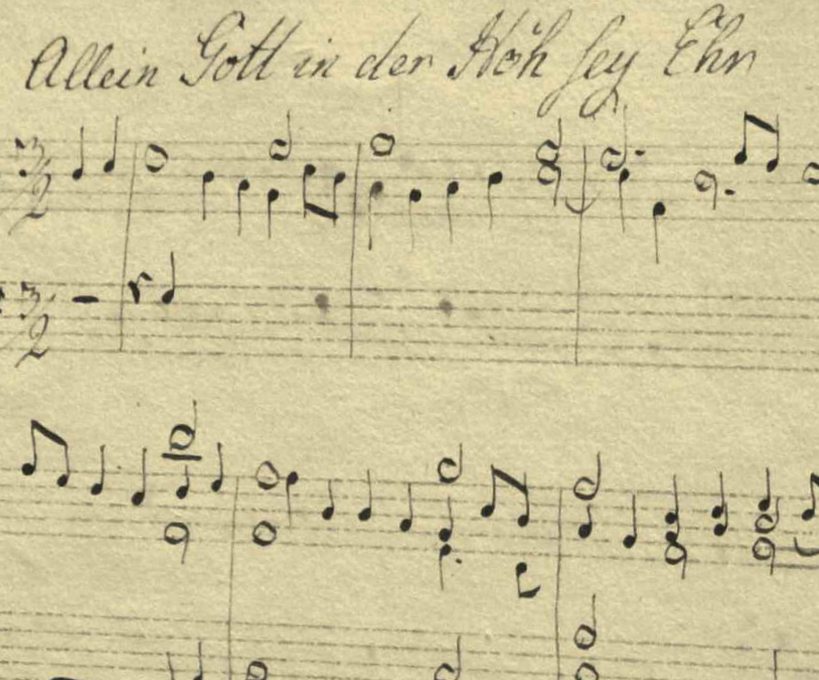 Allein Gott in der Höh sey Ehr
3/2
3/2